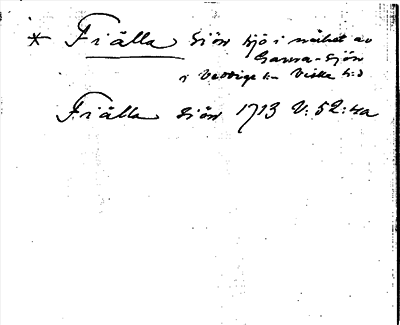 * Fiälla Siön sjö i närhet av
Sarva-sjön
i Vessige s:n Viske h:d
Fiälla Siön 1713 V: 52: 4a